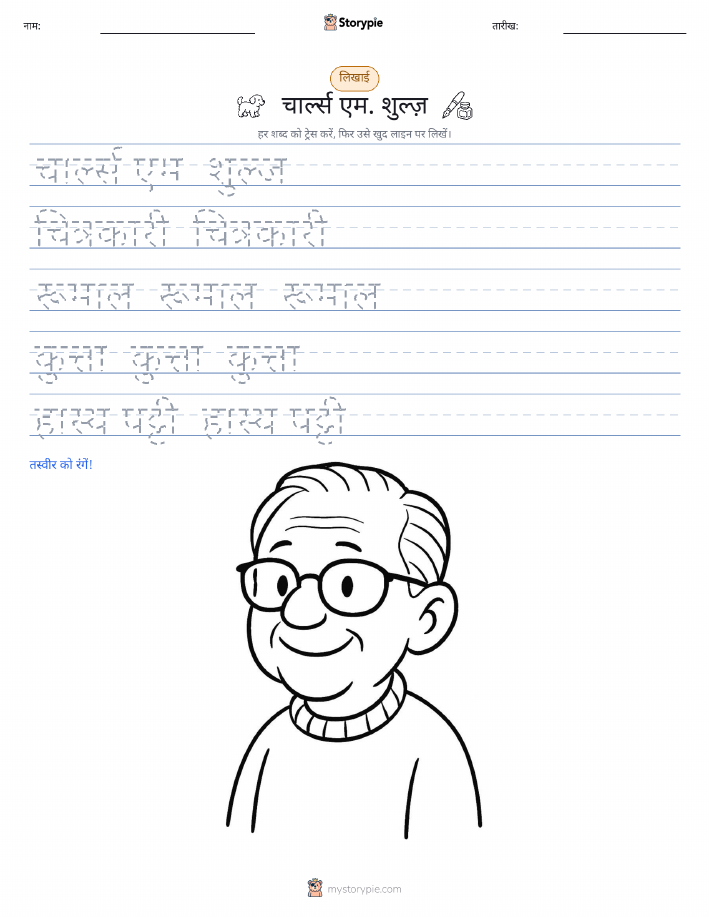 नाम:
Storypie
तारीख:
लिखाई
चार्ल्स एम. शुल्ज़
हर शब्द को ट्रेस करें, फिर उसे खुद लाइन पर लिखें।
चार्ल्स एम शुल्ज
चित्रकारी चित्रकारी
रूमाल रूमाल रूमाल
कुत्ता कुत्ता कुत्ता
हास्य पट्टी हास्य पट्टी
तस्वीर को रंगें!
mystorypie.com